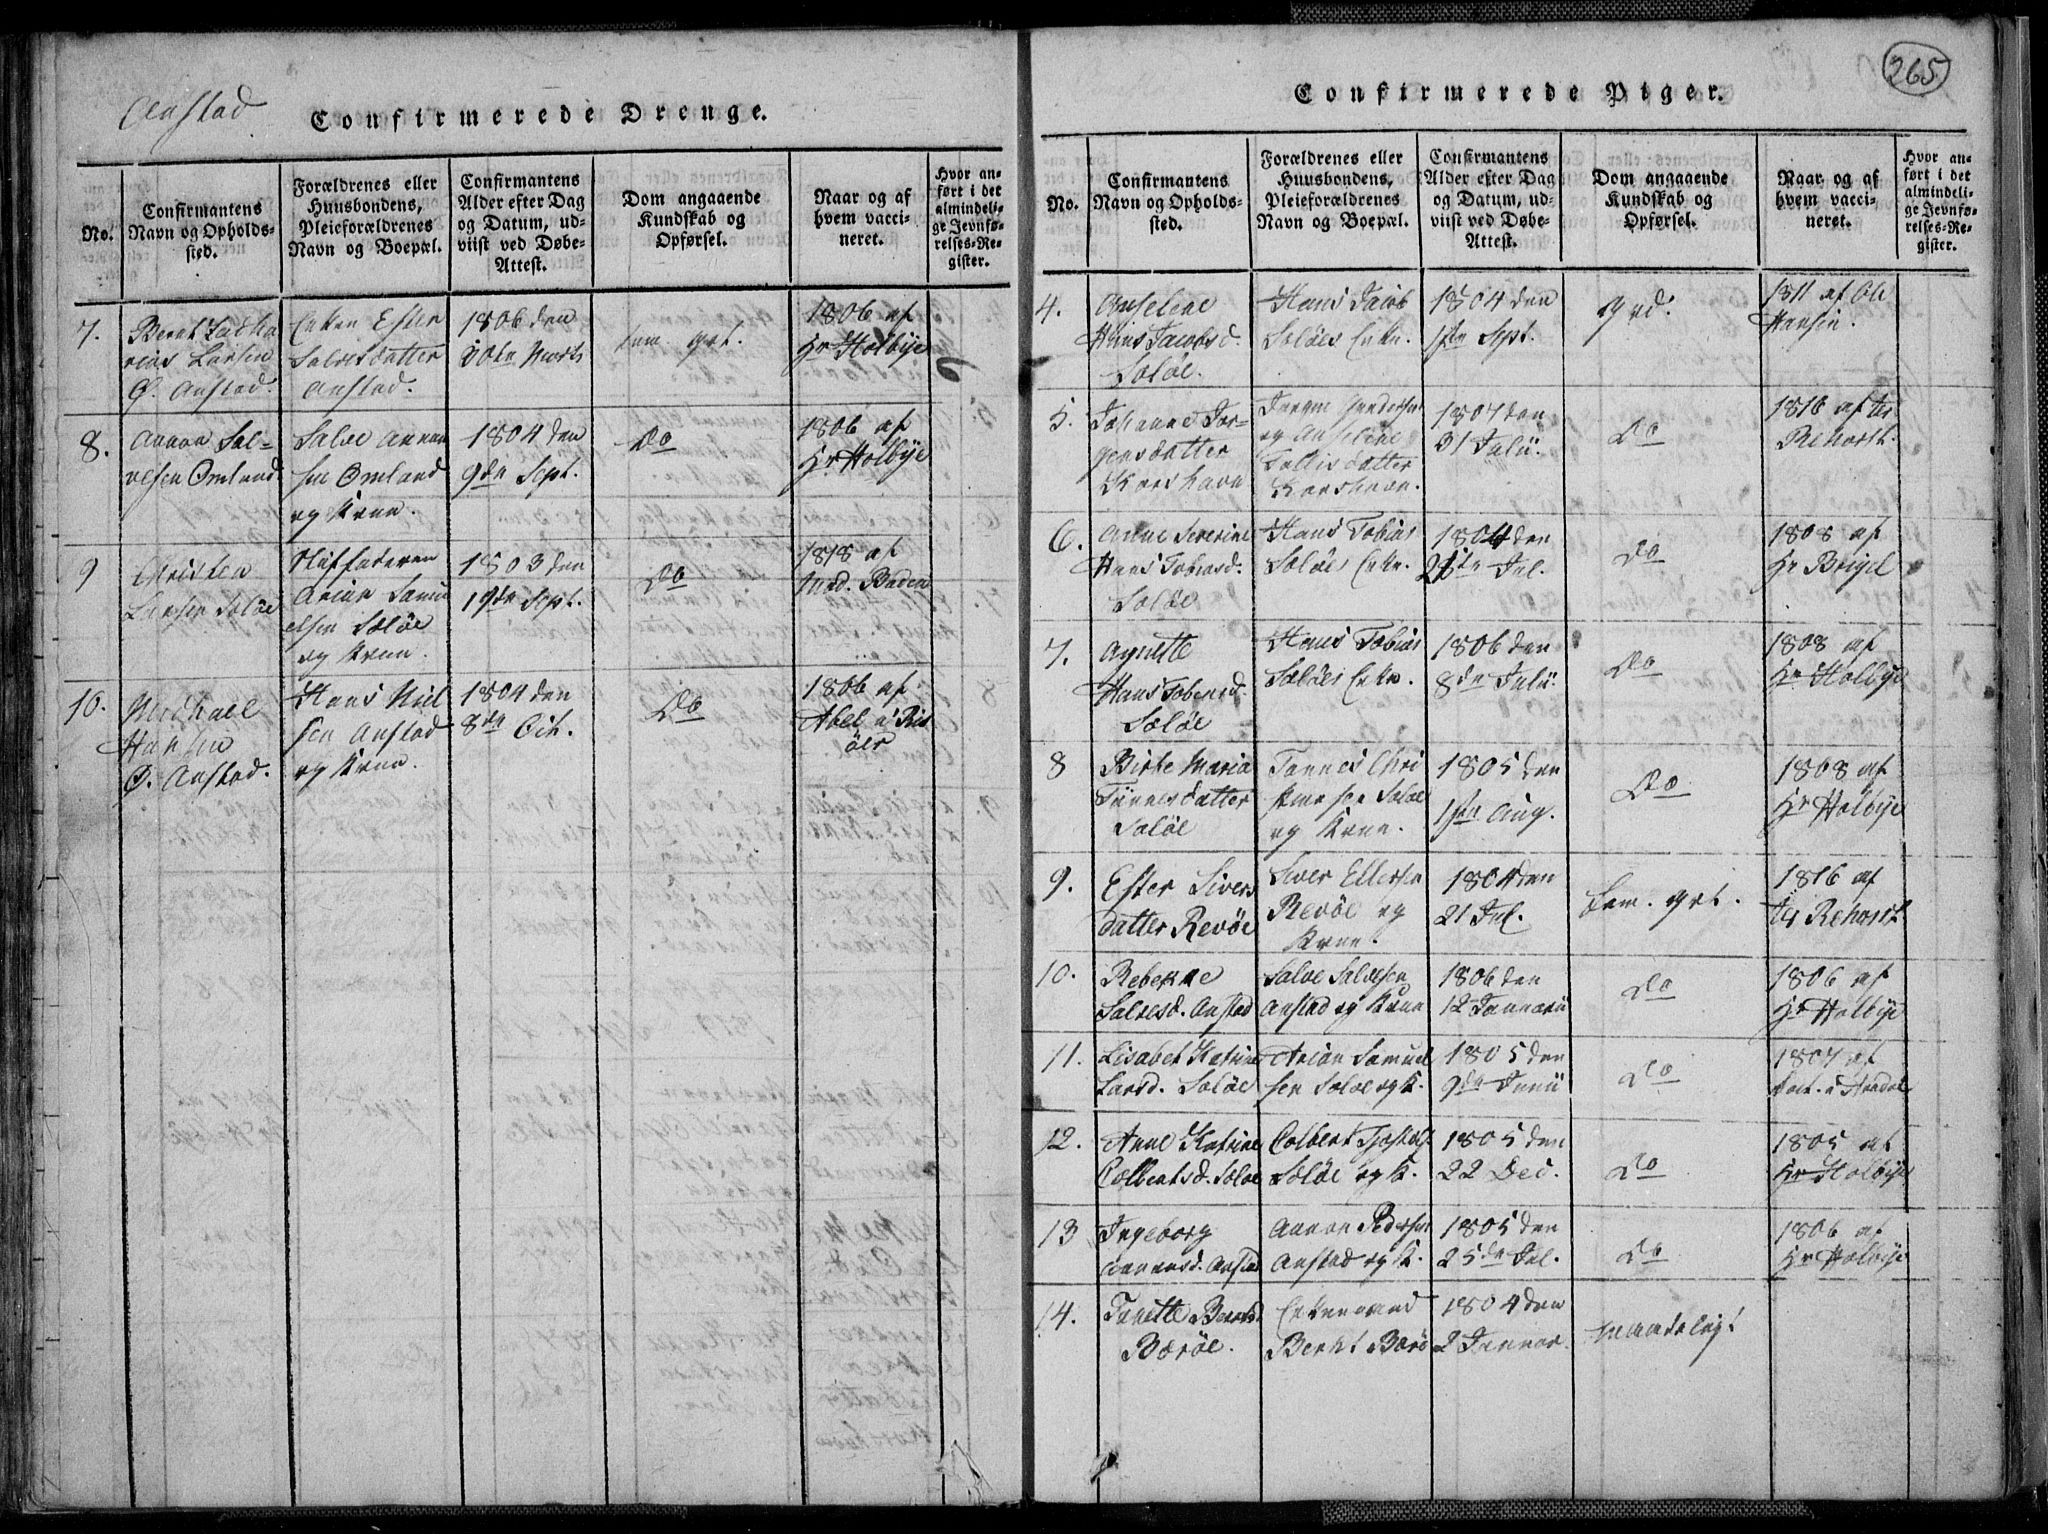 Anstad
Confirmerede Drenge.
No.
Confirmantens
Navn og Opholds-
sted.
Forældrenes eller
Huusbondens,
Pleieforældrenes
Navn og Boepæl.
Confirmantens
Alder efter Dag
og Datum, ud-
viist ved Døbe-
Attest.
Dom angaaende
Kundskab og
Opførsel.
Naar og af
hvem vacci-
neret.
Hvor an-
ført i det
almindeli-
ge Jevnfø-
relses-Re-
gister.
7.
Bernt Zacha
rias Larsen
Ø. Anstad.
Enken Ester
Salvesdatter
Anstad.
1806 den
30te Marts
tem. grt.
1806 af
Hr Holbye
8.
Aanon Sal-
vesen Omland
Salve Aanon
sen Omland
og Kone.
1804 den
9de Sept.
Do
1806 af
Hr Holbye
9
Christen
Larsen Saløe
Stiffaderen
Arian Samu
elsen Sæløe
og Kone.
1803 den
19de Sept.
Do
1818 af
Mad. Boden
10.
Michael
Hansen
Ø. Anstad.
Hans Niel
sen Anstad
og Kone.
1804 den
8de Oct.
Do
1806 af
Abel i Ris
öer
265
Confirmerede Piger.
No.
Confirmantens
Navn og Opholds-
sted.
Forældrenes eller
Huusbondens,
Pleieforældrenes
Navn og Boepæl.
Confirmantens
Alder efter Dag
og Datum, ud-
viist ved Døbe-
Attest.
Dom angaaende
Kundskab og
Opførsel.
Naar og af
hvem vacci-
neret.
Hvor an-
ført i det
almindeli-
ge Jevnfø-
relses-Re-
gister.
4.
Anselene
Hans Jacobsd.
Saløe.
Hans Jacob
Saløes Enke.
1804 den
1ste Sept.
god.
1811 af Ole
Hansen.
5.
Johanne Jør-
gensdatter
Korshavn
Jørgen
og Anselene
Tollisdatter
Korshavn.
1804 den
31 Julii
Do
1816 af
Rehorst.
6.
Anne Severine
Hans Tobiasd.
Saløe
Hans Tobias
Saløes Enke.
1804 den
Jul.
Do
1808 af
Hr
7.
Agnette
Hans Tobiasd.
Sæløe
Hans Tobias
Sæløes Enke.
1806 den
8de Julii
Do
1808 af
Hr Holbye
8
Birte Maria
Tønnesdatter
Saløe
Tønnes Chri
stensen Saløe
og Kone.
1805 den
1ste Aug.
Do
1808 af
Hr Holbye
9.
Ester Sivers
datter Revøe
Siver Ellefsen
Revøe og
Kone.
1804 den
21 Jul.
tem. grt.
1816 af
Rehorst
10.
Rebekke
Salvesd. Anstad
Salve Salvesen
Anstad og Kone
1806 den
12 Januarii
Do
1806 af
Hr Holbye
11.
Lisabet Katrine
Larsd. Saløe
Arian Samuel
sen Saløe og K.
1805 den
9de Junii
Do
1807 af
Doct. i Arendal
12.
Anne Katrine
Colbentsd. Saløe
Colbent
Sæløe og K.
1805 den
22 Dec.
Do
1805 af
Hr Holbye
13
Ingeborg
Aanonsd. Anstad
Aanon Pedersen
Anstad og K.
1805 den
25de Jul.
Do
1806 af
Hr Holbye
14.
Tanette Berntsd.
Bærøe.
Enkemand
Bernt Bærø
1804 den
2 Januar.
maadeligt